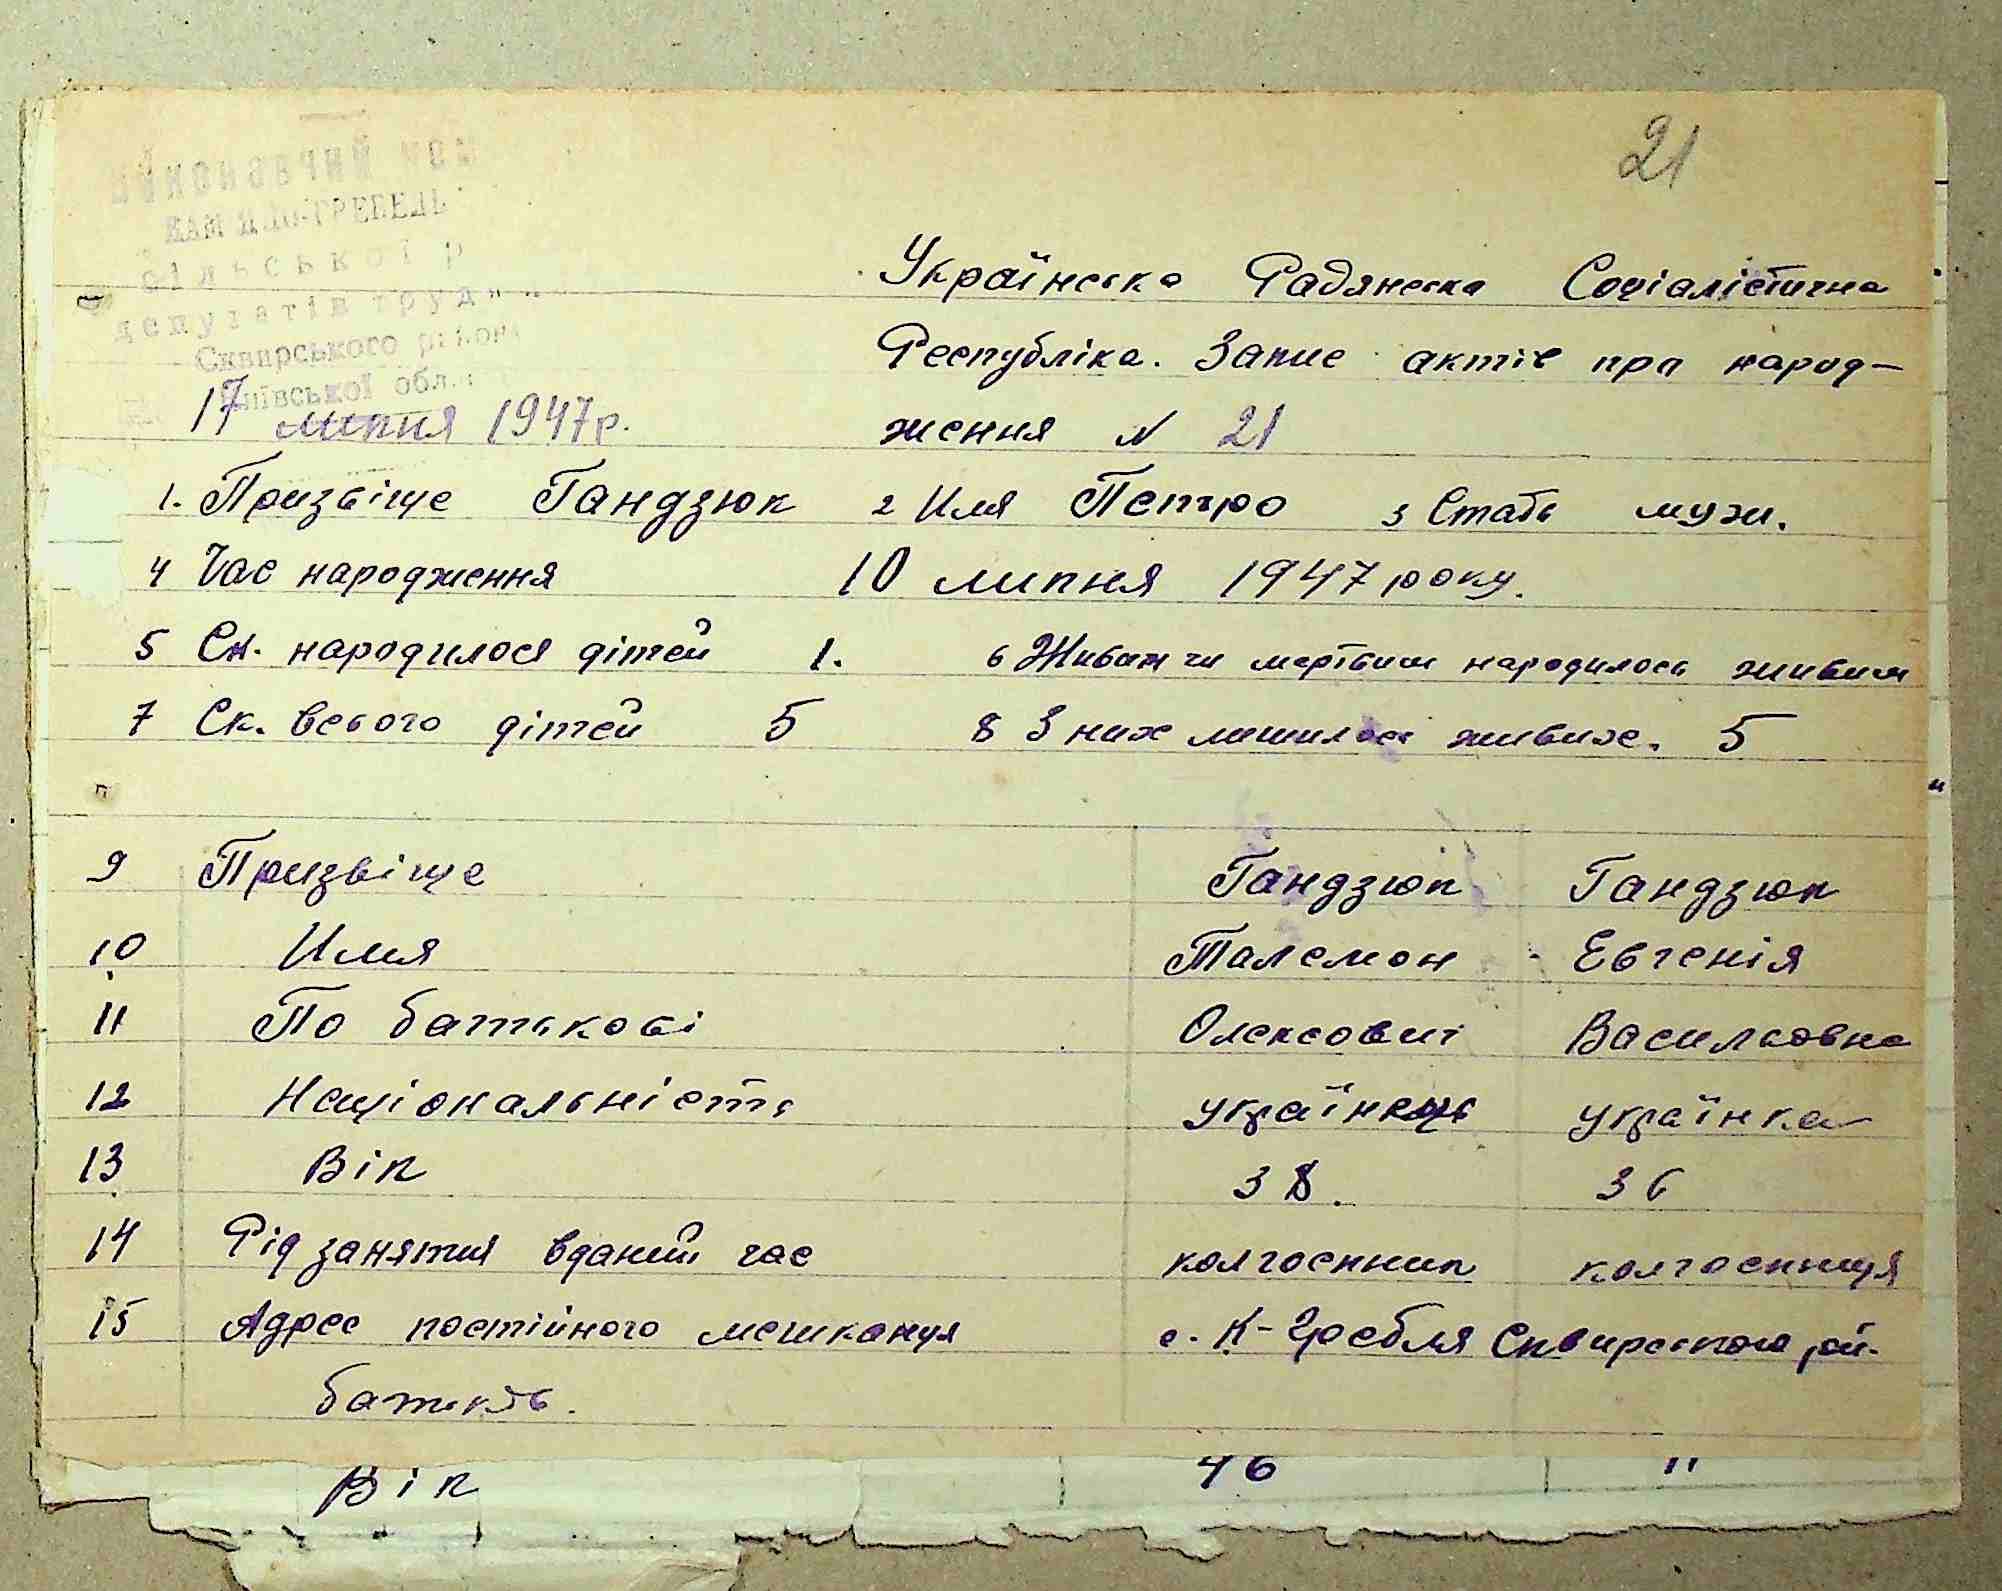 21
Виконавчий ком
КАМ'ЯНО-ГРЕБЕЛЬ
сільської р
депутатів труд
Сквирського район
Київської обл.
Українська Радянська Соціалістична
Республіка. Запис актів про народ-
17 липня 1947 р.
ження N 21
1. Призвіще Гандзюк 2 Имя Петро 3 Стать муж.
4 Час народження 10 липня 1947 року.
5 Ск. народилося дітей 1. 6 Живим чи мертвим народилось живим
7 Ск. всього дітей 5 8 З них лишилося живих. 5
9 Призвіще Гандзюк Гандзюк
10 Имя Талемон Евгенія
11 По батькові Олексович Васильовна
12 Національність українець українка
13 Вік 38. 36
14 Рід заняття вданий час колгоспник колгоспниця
15 Адрес постійного мешканця с. К-Гребля Сквирського рай.
батьків.
Вік 46 "